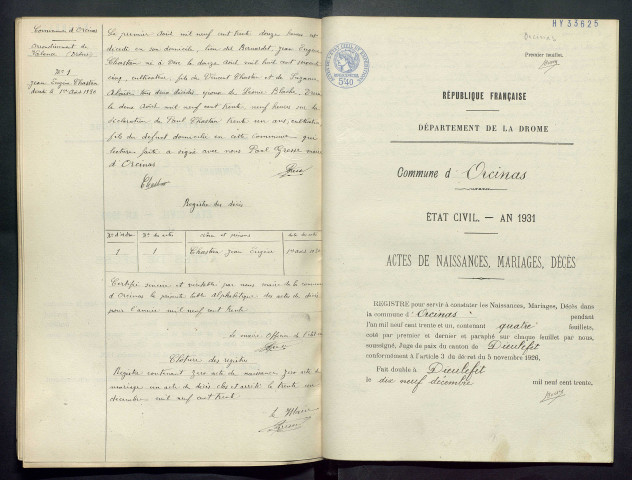 Commune d'Orcinas
arrondissement de
Valence (Drôme)
N° 1
Jean Eugène Chastan
décédé le 1er Août 1930
Le premier août mil neuf cent trente douze heures est
décédé en son domicile, Jean Eugène
Chastan né à le douze août mil huit cent soixante
cinq, cultivateur, fils de Vincent Chastan et de Suzanne
époux de
le deux Août mil neuf cent trente, neuf heures sur la
déclaration de Paul Chastan trente un ans, cultivateur
fils du défunt domicilié en cette commune, qui
lecture faite a signé avec nous Paul maire
d'Orcinas
Chastan
Registre des décès
N° d'ordre N° des actes Noms et prénoms Date des actes
1 1 Chastan Jean Eugène 1er août 1930
Certifié sincère et véritable par nous maire de la commune
d'Orcinas la présente table alphabétique des actes de décès
pour l'année mil neuf cent trente
Le maire Officier de l'état civil
Clôture des registres
Registre contenant zéro acte de naissance zéro acte de
mariage un acte de décès clos et arrêté le trente un
décembre mil neuf cent trente
Le Maire
HY33625
Orcinas
Premier feuillet.
5f40
RÉPUBLIQUE FRANÇAISE
DÉPARTEMENT DE LA DROME
Commune d'Orcinas
ÉTAT CIVIL. — AN 1931
ACTES DE NAISSANCES, MARIAGES, DÉCÈS
REGISTRE pour servir à constater les Naissances, Mariages, Décès dans
la commune d'Orcinas pendant
l'an mil neuf cent trente et un, contenant quatre feuillets,
coté par premier et dernier et paraphé sur chaque feuillet par nous,
soussigné, Juge de paix du canton de Dieulefit
conformément à l'article 3 du décret du 5 novembre 1926.
Fait double à Dieulefit
le dix neuf décembre mil neuf cent trente.